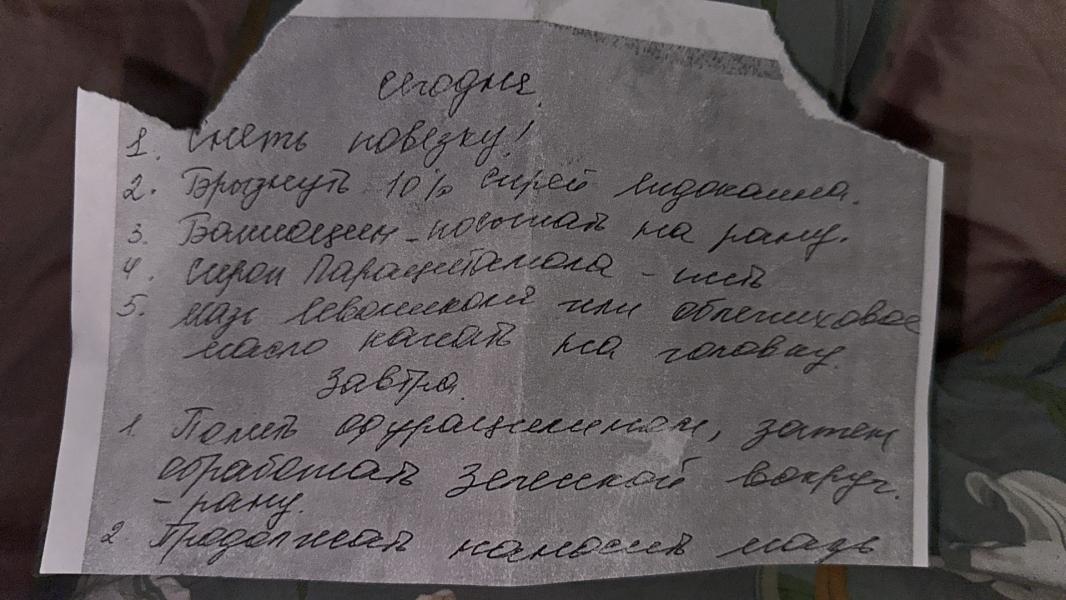 Сегодня.
1. Снять повязку!
2. Брызнуть 10% спрей лидокаина.
3. Банеоцин - посыпать на рану.
4. Сироп Парацетамола - пить
5. мазь левомиколь или облепиховое
масло капать на головку.
Завтра.
1. Полить фурацилином, затем
обработать зеленкой вокруг.
- рану.
2. Продолжать наносить мазь